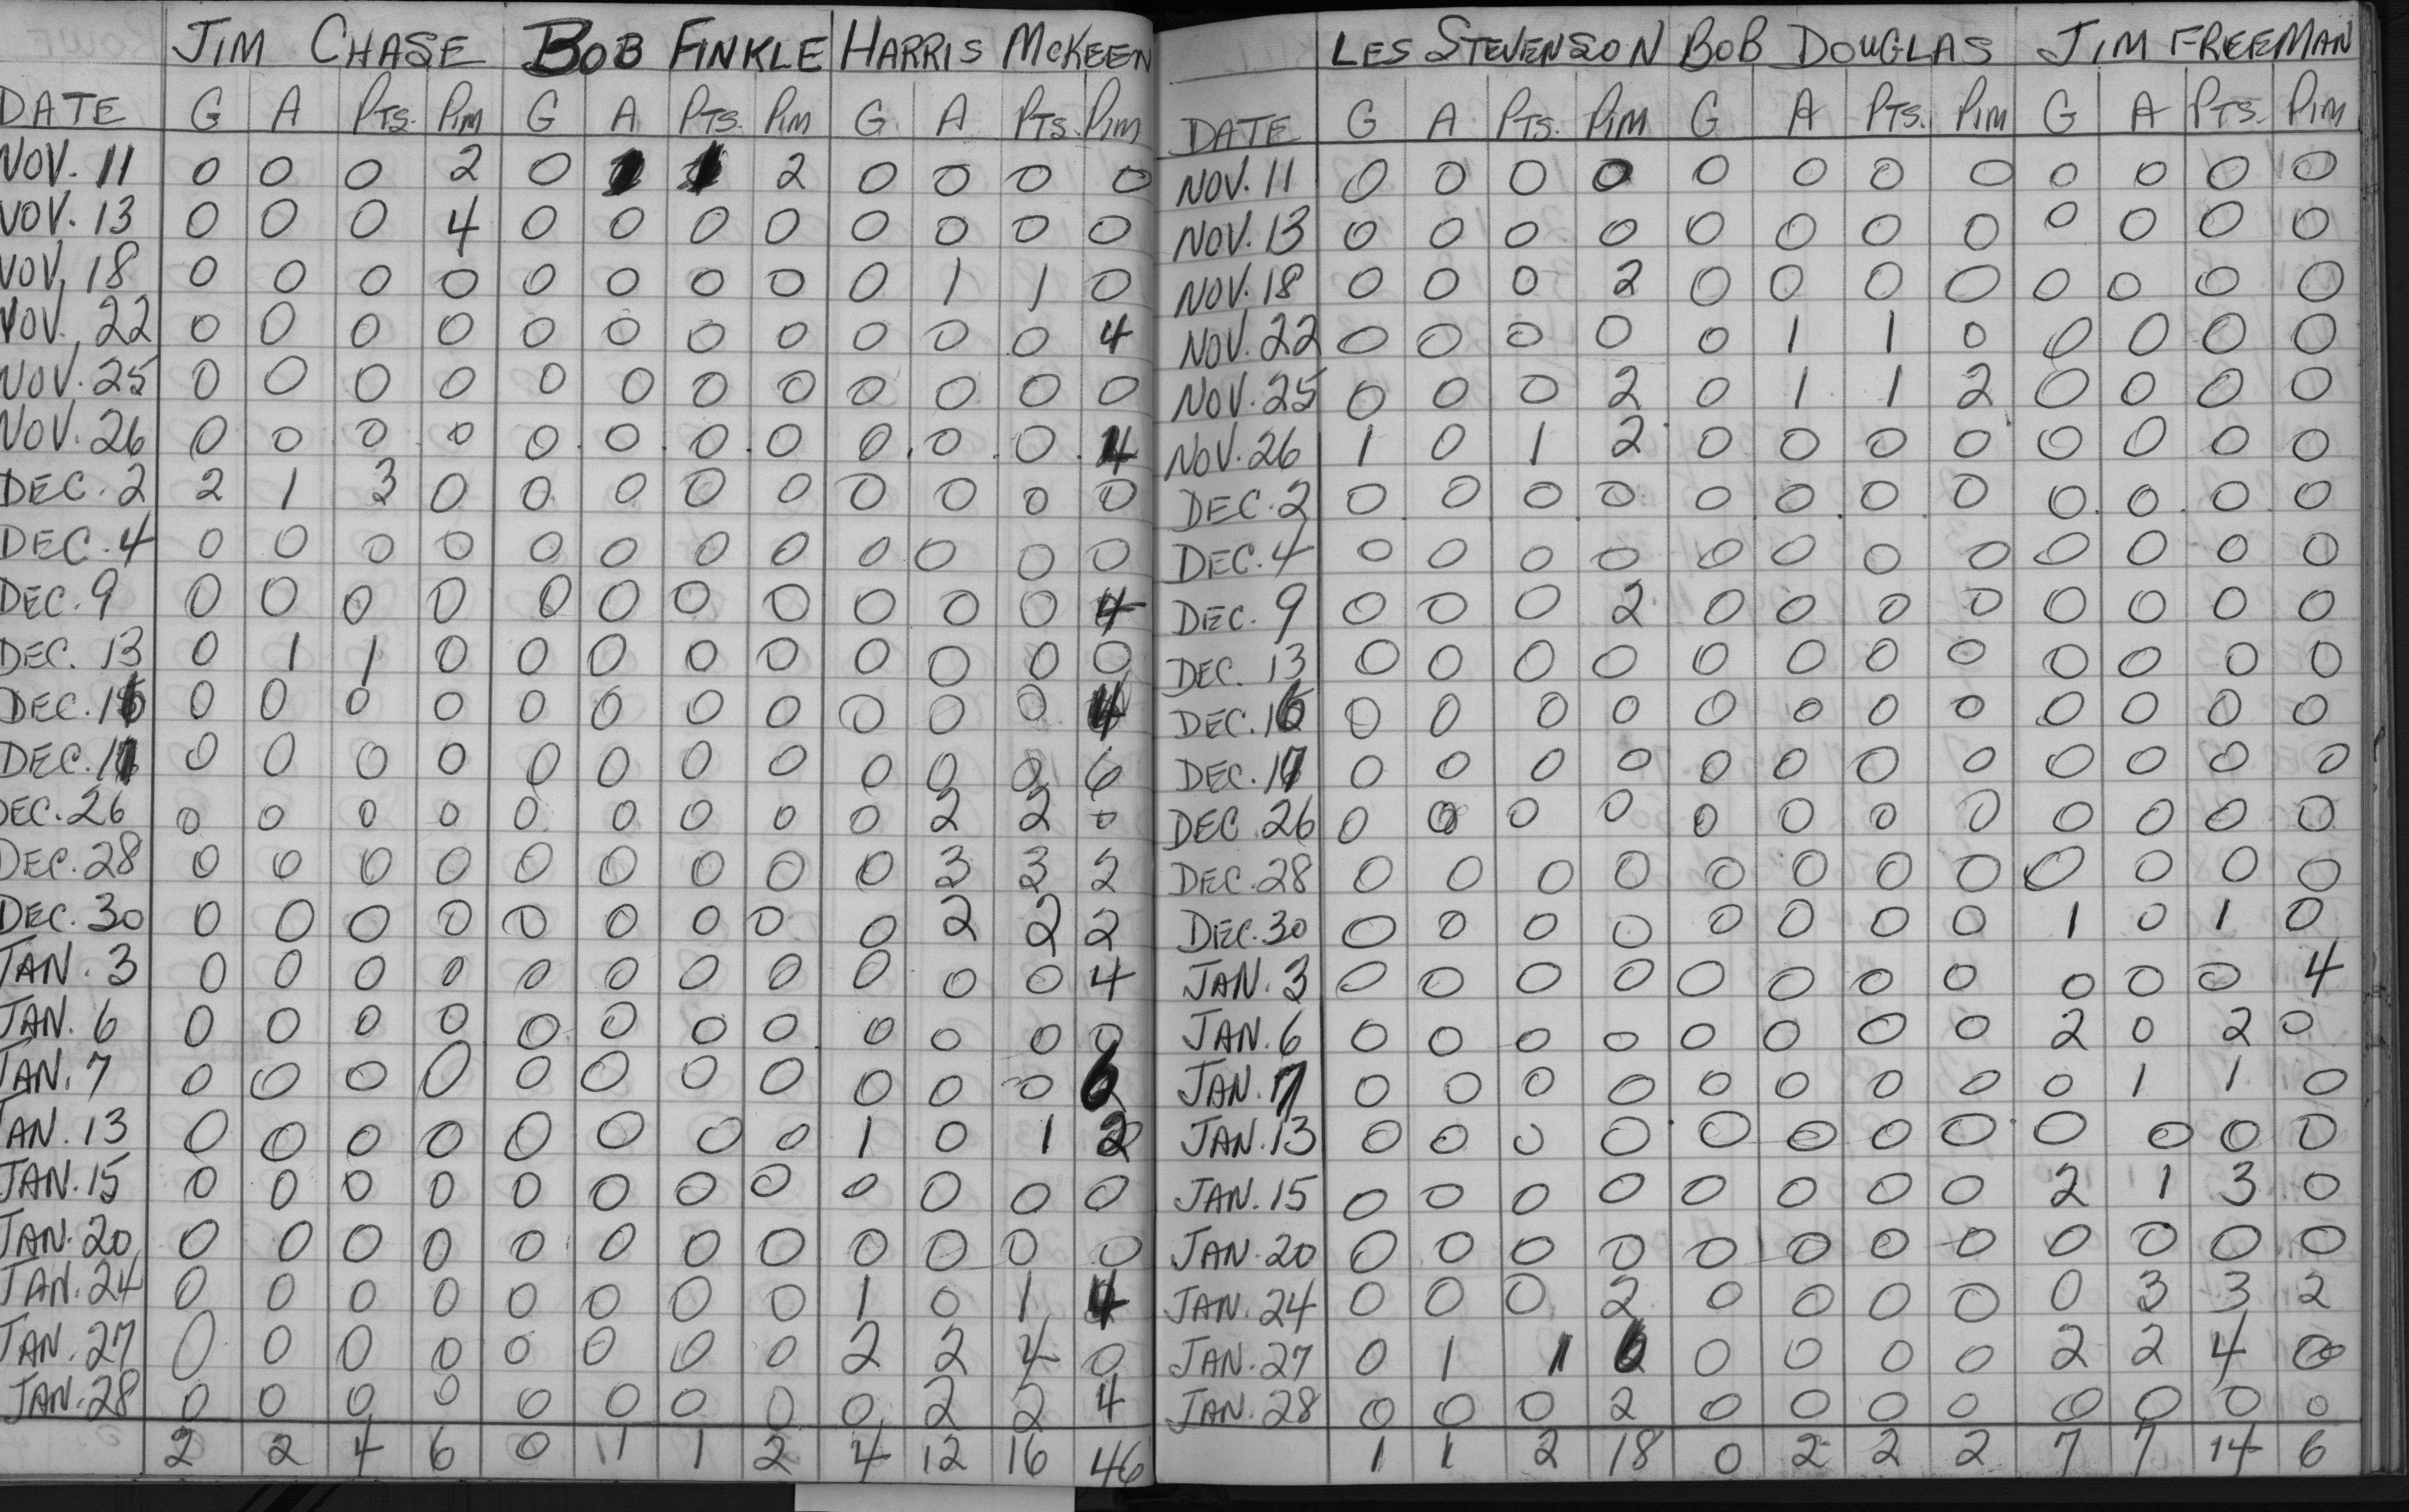 JIM CHASE BOB FINKLE HARRIS MCKEEN
DATE G A PTS. PIM G A PTS. PIM G A PTS. PIM
NOV. 11 0 0 0 2 0 1 1 2 0 0 0 0
NOV. 13 0 0 0 4 0 0 0 0 0 0 0 0
NOV. 18 0 0 0 0 0 0 0 0 0 1 1 0
NOV. 22 0 0 0 0 0 0 0 0 0 0 0 4
NOV. 25 0 0 0 0 0 0 0 0 0 0 0 0
NOV. 26 0 0 0 0 0 0 0 0 0 0 0 4
DEC. 2 2 1 3 0 0 0 0 0 0 0 0 0
DEC. 4 0 0 0 0 0 0 0 0 0 0 0 0
DEC. 9 0 0 0 0 0 0 0 0 0 0 0 4
DEC. 13 0 1 1 0 0 0 0 0 0 0 0 0
DEC. 16 0 0 0 0 0 0 0 0 0 0 0 4
DEC. 17 0 0 0 0 0 0 0 0 0 0 0 6
DEC. 26 0 0 0 0 0 0 0 0 0 2 2 0
DEC. 28 0 0 0 0 0 0 0 0 0 3 3 2
DEC. 30 0 0 0 0 0 0 0 0 0 2 2 2
JAN. 3 0 0 0 0 0 0 0 0 0 0 0 4
JAN. 6 0 0 0 0 0 0 0 0 0 0 0 0
JAN. 7 0 0 0 0 0 0 0 0 0 0 0 6
JAN. 13 0 0 0 0 0 0 0 0 1 0 1 2
JAN. 15 0 0 0 0 0 0 0 0 0 0 0 0
JAN. 20 0 0 0 0 0 0 0 0 0 0 0 0
JAN. 24 0 0 0 0 0 0 0 0 1 0 1 4
JAN. 27 0 0 0 0 0 0 0 0 2 2 4 0
JAN. 28 0 0 0 0 0 0 0 0 0 2 2 4
2 2 4 6 0 1 1 2 4 12 16 46
LES STEVENSON BOB DOUGLAS JIM FREEMAN
DATE G A PTS. PIM G A PTS. PIM G A PTS. PIM
NOV. 11 0 0 0 0 0 0 0 0 0 0 0 0
NOV. 13 0 0 0 0 0 0 0 0 0 0 0 0
NOV. 18 0 0 0 2 0 0 0 0 0 0 0 0
NOV. 22 0 0 0 0 0 1 1 0 0 0 0 0
NOV. 25 0 0 0 2 0 1 1 2 0 0 0 0
NOV. 26 1 0 1 2 0 0 0 0 0 0 0 0
DEC. 2 0 0 0 0 0 0 0 0 0 0 0 0
DEC. 4 0 0 0 0 0 0 0 0 0 0 0 0
DEC. 9 0 0 0 2 0 0 0 0 0 0 0 0
DEC. 13 0 0 0 0 0 0 0 0 0 0 0 0
DEC. 16 0 0 0 0 0 0 0 0 0 0 0 0
DEC. 17 0 0 0 0 0 0 0 0 0 0 0 0
DEC 26 0 0 0 0 0 0 0 0 0 0 0 0
DEC. 28 0 0 0 0 0 0 0 0 0 0 0 0
DEC. 30 0 0 0 0 0 0 0 0 1 0 1 0
JAN. 3 0 0 0 0 0 0 0 0 0 0 0 4
JAN. 6 0 0 0 0 0 0 0 0 2 0 2 0
JAN. 7 0 0 0 0 0 0 0 0 0 1 1 0
JAN. 13 0 0 0 0 0 0 0 0 0 0 0 0
JAN. 15 0 0 0 0 0 0 0 0 2 1 3 0
JAN. 20 0 0 0 0 0 0 0 0 0 0 0 0
JAN. 24 0 0 0 2 0 0 0 0 0 3 3 2
JAN. 27 0 1 1 6 0 0 0 0 2 2 4 0
JAN. 28 0 0 0 2 0 0 0 0 0 0 0 0
1 1 2 18 0 2 2 2 7 7 14 6